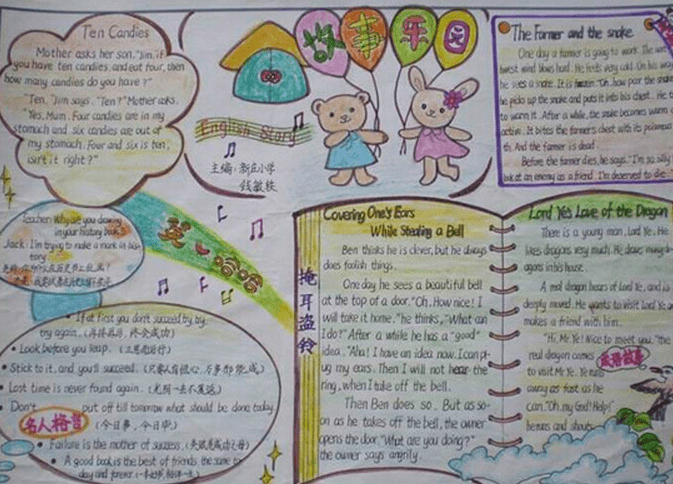 Ten Candies
Mother asks her son, "Jim, if
you have ten candies, and eat four, then
how many candies do you have?"
"Ten," Jim says. "Ten?" Mother asks.
Yes, Mum. Four candies are in my
stomach and six candies are out of
my stomach. Four and six is ten,
isn't it right?"
故事乐园
English Story
主编:新庄小学
钱敏轶
The Farmer and the snake
One day a farmer is going to work. The
west wind blows hard. He feels very cold. On his way
he sees a snake. It is "Oh, poor the snake
he picks up the snake and puts it into his chest. He
to warm it. After a while, the snake becomes warm
active. It bites the farmer's chest with its poisonous
th. And the farmer is dead.
Before the farmer dies, he says, "I'm so silly
look at an enemy as a friend. I'm deserved to die
Teacher: Why are you drawing
in your history book
Jack: I'm trying to make a mark in his
tory.
英 哈哈
If at first you don't succeed, try, try,
try again. (再接再厉,终会成功)
Look before you leap. (三思而后行)
Stick to it, and you'll succeed. (只要人有恒心,万事都能成)
Lost time is never found again. (光阴一去不复返)
Don't put off till tomorrow what should be done today.
名人格言 (今日事,今日毕)
Failure is the mother of success. (失败是成功之母)
A good book is the best of friends, the same to
day and forever.
掩耳盗铃
Covering One's Ears
While Stealing a Bell
Ben thinks he is clever, but he always
does foolish things.
One day he sees a beautiful bell
at the top of a door. "Oh, How nice! I
will take it home." he thinks, "What can
I do?" After a while he has a "good"
idea. "Aha! I have an idea now. I can pl-
ug my ears. Then I will not hear the
ring, when I take off the bell.
Then Ben does so. But as so-
on as he takes off the bell, the owner
opens the door, "What are you doing?"
the owner says angrily.
Lord Ye's Love of the Dragon
There is a young man, Lord Ye. He
likes dragons very much. He draws many dr-
agons in his house.
A real dragon hears of Lord Ye, and is
deeply moved. He wants to visit Lord Ye an
makes a friend with him.
"Hi, Mr. Ye! Nice to meet you." the
real dragon comes
to visit Mr Ye. Ye runs
away as fast as he
can. "Oh, my God! Help!"
he runs and shouts.
成语故事